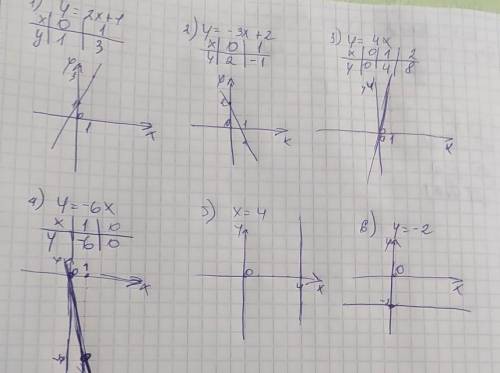 1) y = 2x+1
x 0 1
y 1 3
y
3
0
1
x
2) y = -3x+2
x 0 1
y 2 -1
y
2
0
1
x
3) y = 4x
x 0 1 2
y 0 4 8
y
0
1
x
4) y = -6x
x 1 0
y -6 0
y
0
1
x
5) x = 4
y
0
4
x
6) y = -2
y
0
-2
x